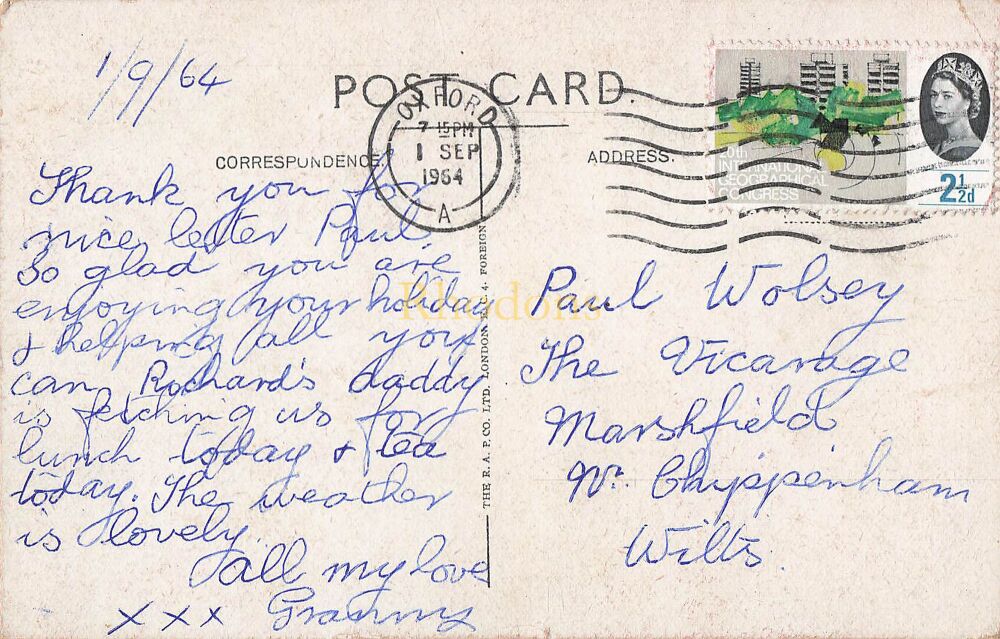 1/9/64
POST CARD.
OXFORD
7 15PM
1 SEP
1964
A
CORRESPONDENCE.
ADDRESS.
20th
INTERNATIONAL
GEOGRAPHICAL
CONGRESS
2½d
Thank you for
nice letter Paul.
So glad you are
enjoying your holiday
& helping all you
can, Richard's daddy
is fetching us for
lunch today & tea
today. The weather
is lovely.
all my love
x x x Granny
THE R. A. P. CO. LTD. LONDON. E.C. 4. FOREIGN
Paul Wolsey
The Vicarage
Marshfield
Nr. Chippenham
Wilts.
Rhodons